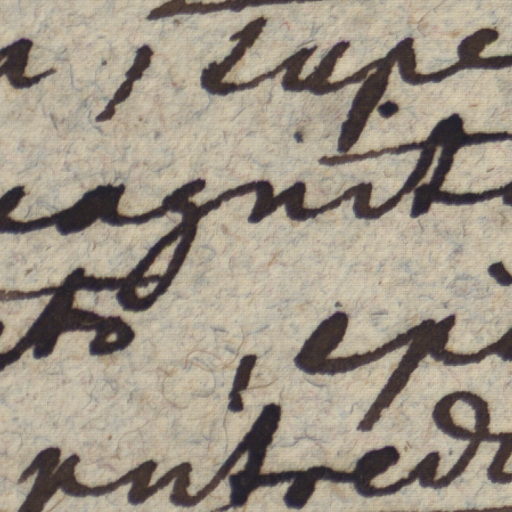 a, supe
eagnit
cto, epi
putred